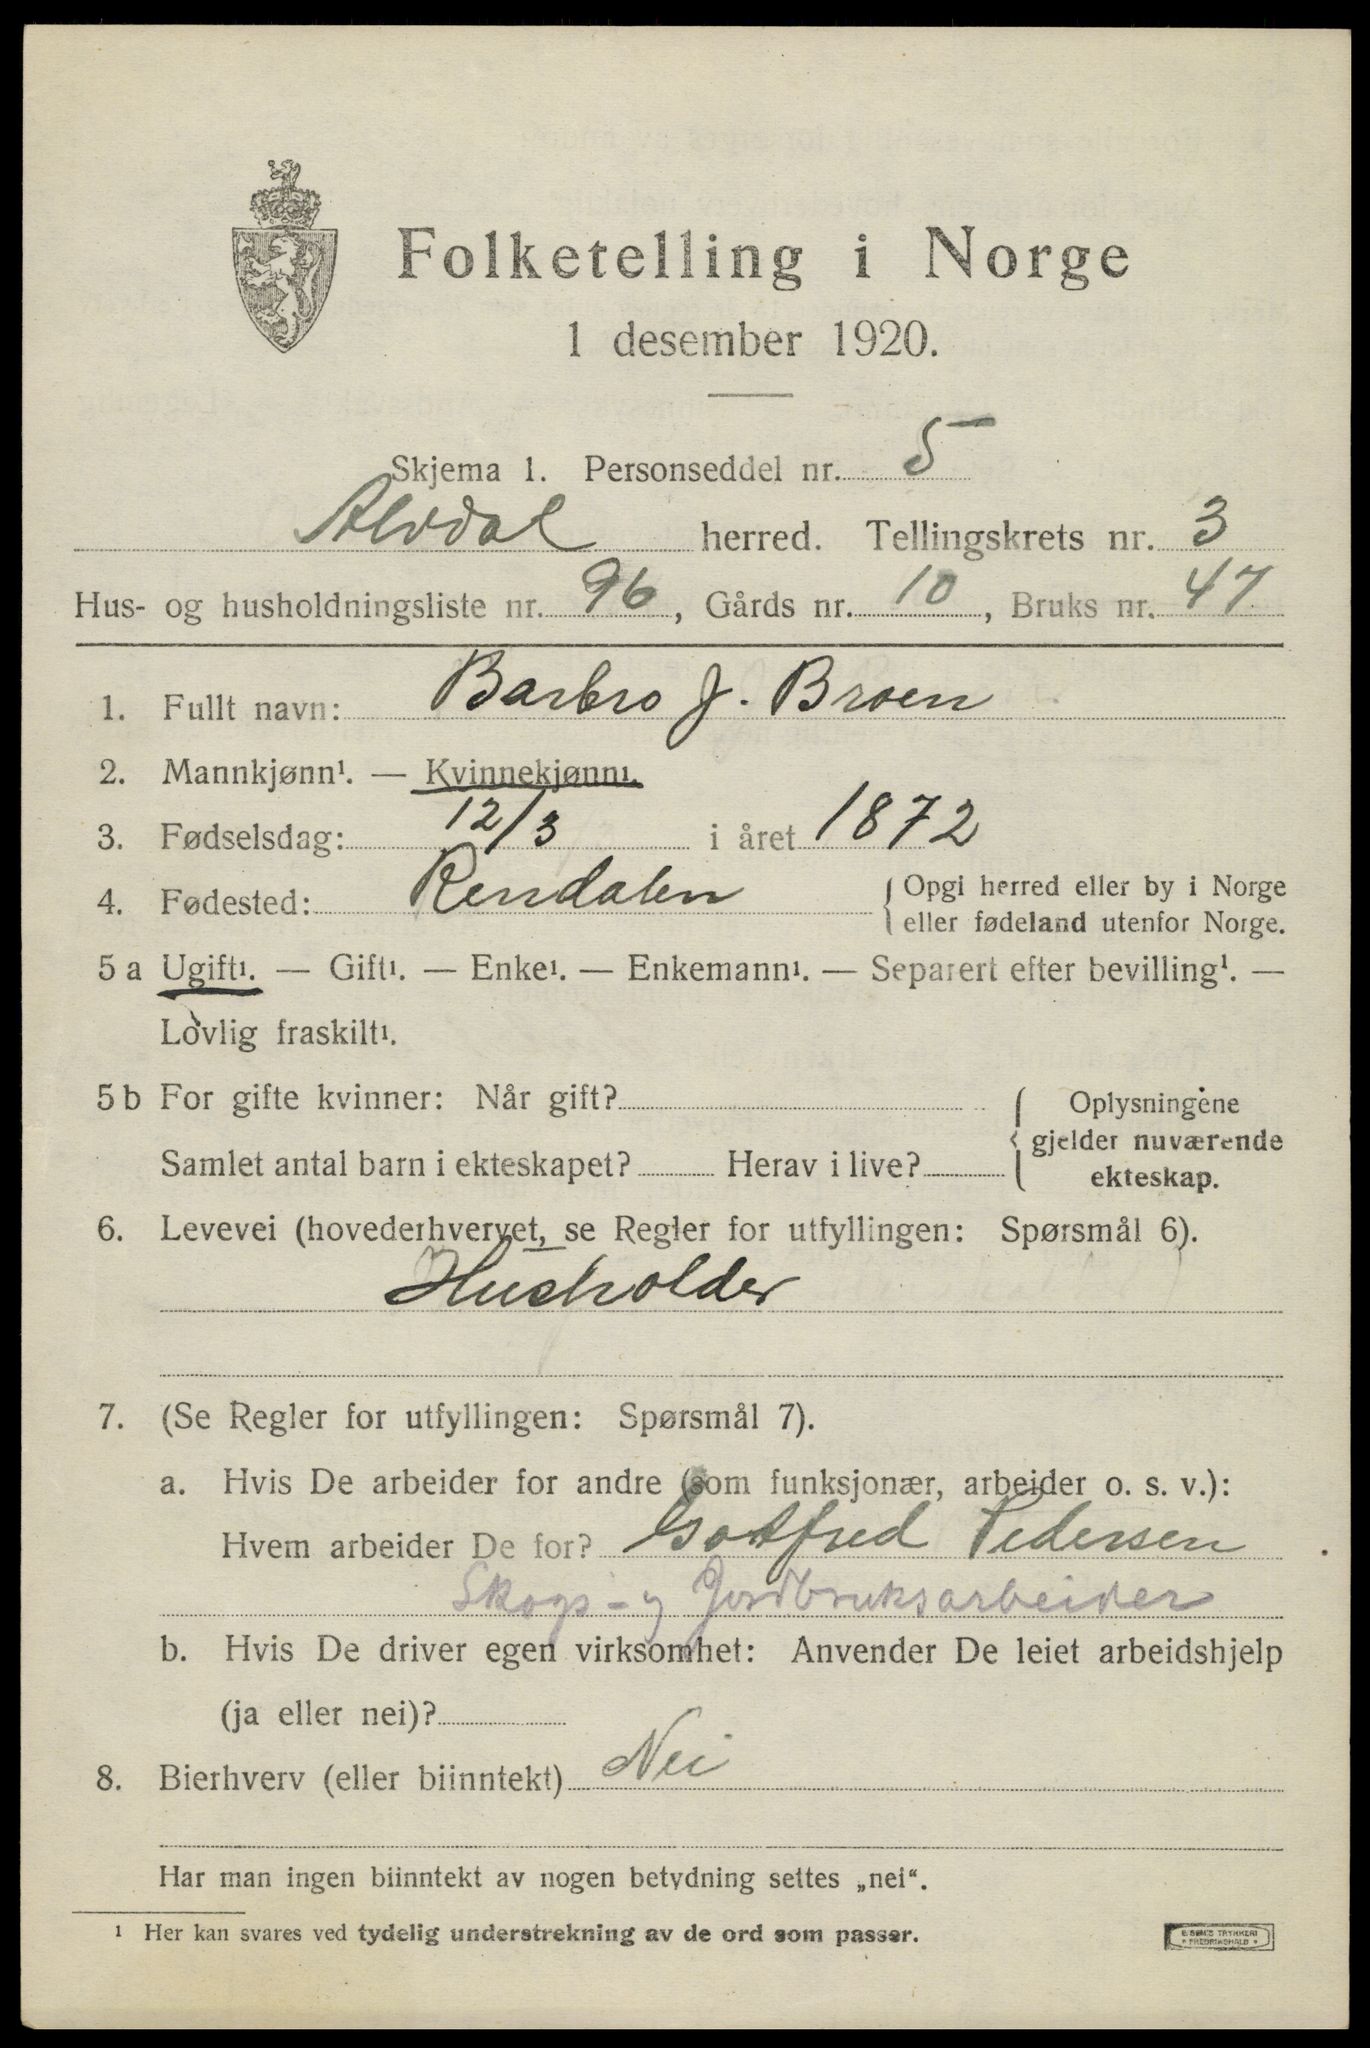 Folketelling i Norge
1 desember 1920.
Skjema 1. Personseddel nr. 5
Alvdal herred. Tellingskrets nr. 3
Hus- og husholdningsliste nr. 96, Gårds nr. 10, Bruks nr. 47
1. Fullt navn: Barbro J. Broen
2. Mannkjønn¹. — Kvinnekjønn¹.
3. Fødselsdag: 12/3 i året 1872
4. Fødested: Rendalen { Opgi herred eller by i Norge
eller fødeland utenfor Norge.
5 a Ugift¹. — Gift¹. — Enke¹. — Enkemann¹. — Separert efter bevilling¹. —
Lovlig fraskilt¹.
5 b For gifte kvinner: Når gift?
Samlet antal barn i ekteskapet? Herav i live?
{ Oplysningene
gjelder nuværende
ekteskap.
6. Levevei (hovederhvervet, se Regler for utfyllingen: Spørsmål 6).
Husholder
7. (Se Regler for utfyllingen: Spørsmål 7).
a. Hvis De arbeider for andre (som funksjonær, arbeider o. s. v.):
Hvem arbeider De for? Gotfred Pedersen
Skogs- og Jordbruksarbeider
b. Hvis De driver egen virksomhet: Anvender De leiet arbeidshjelp
(ja eller nei)?
8. Bierhverv (eller biinntekt) Nei
Har man ingen biinntekt av nogen betydning settes „nei“.
¹ Her kan svares ved tydelig understrekning av de ord som passer.
E. SEM'S TRYKKERI
FREDRIKSHALD